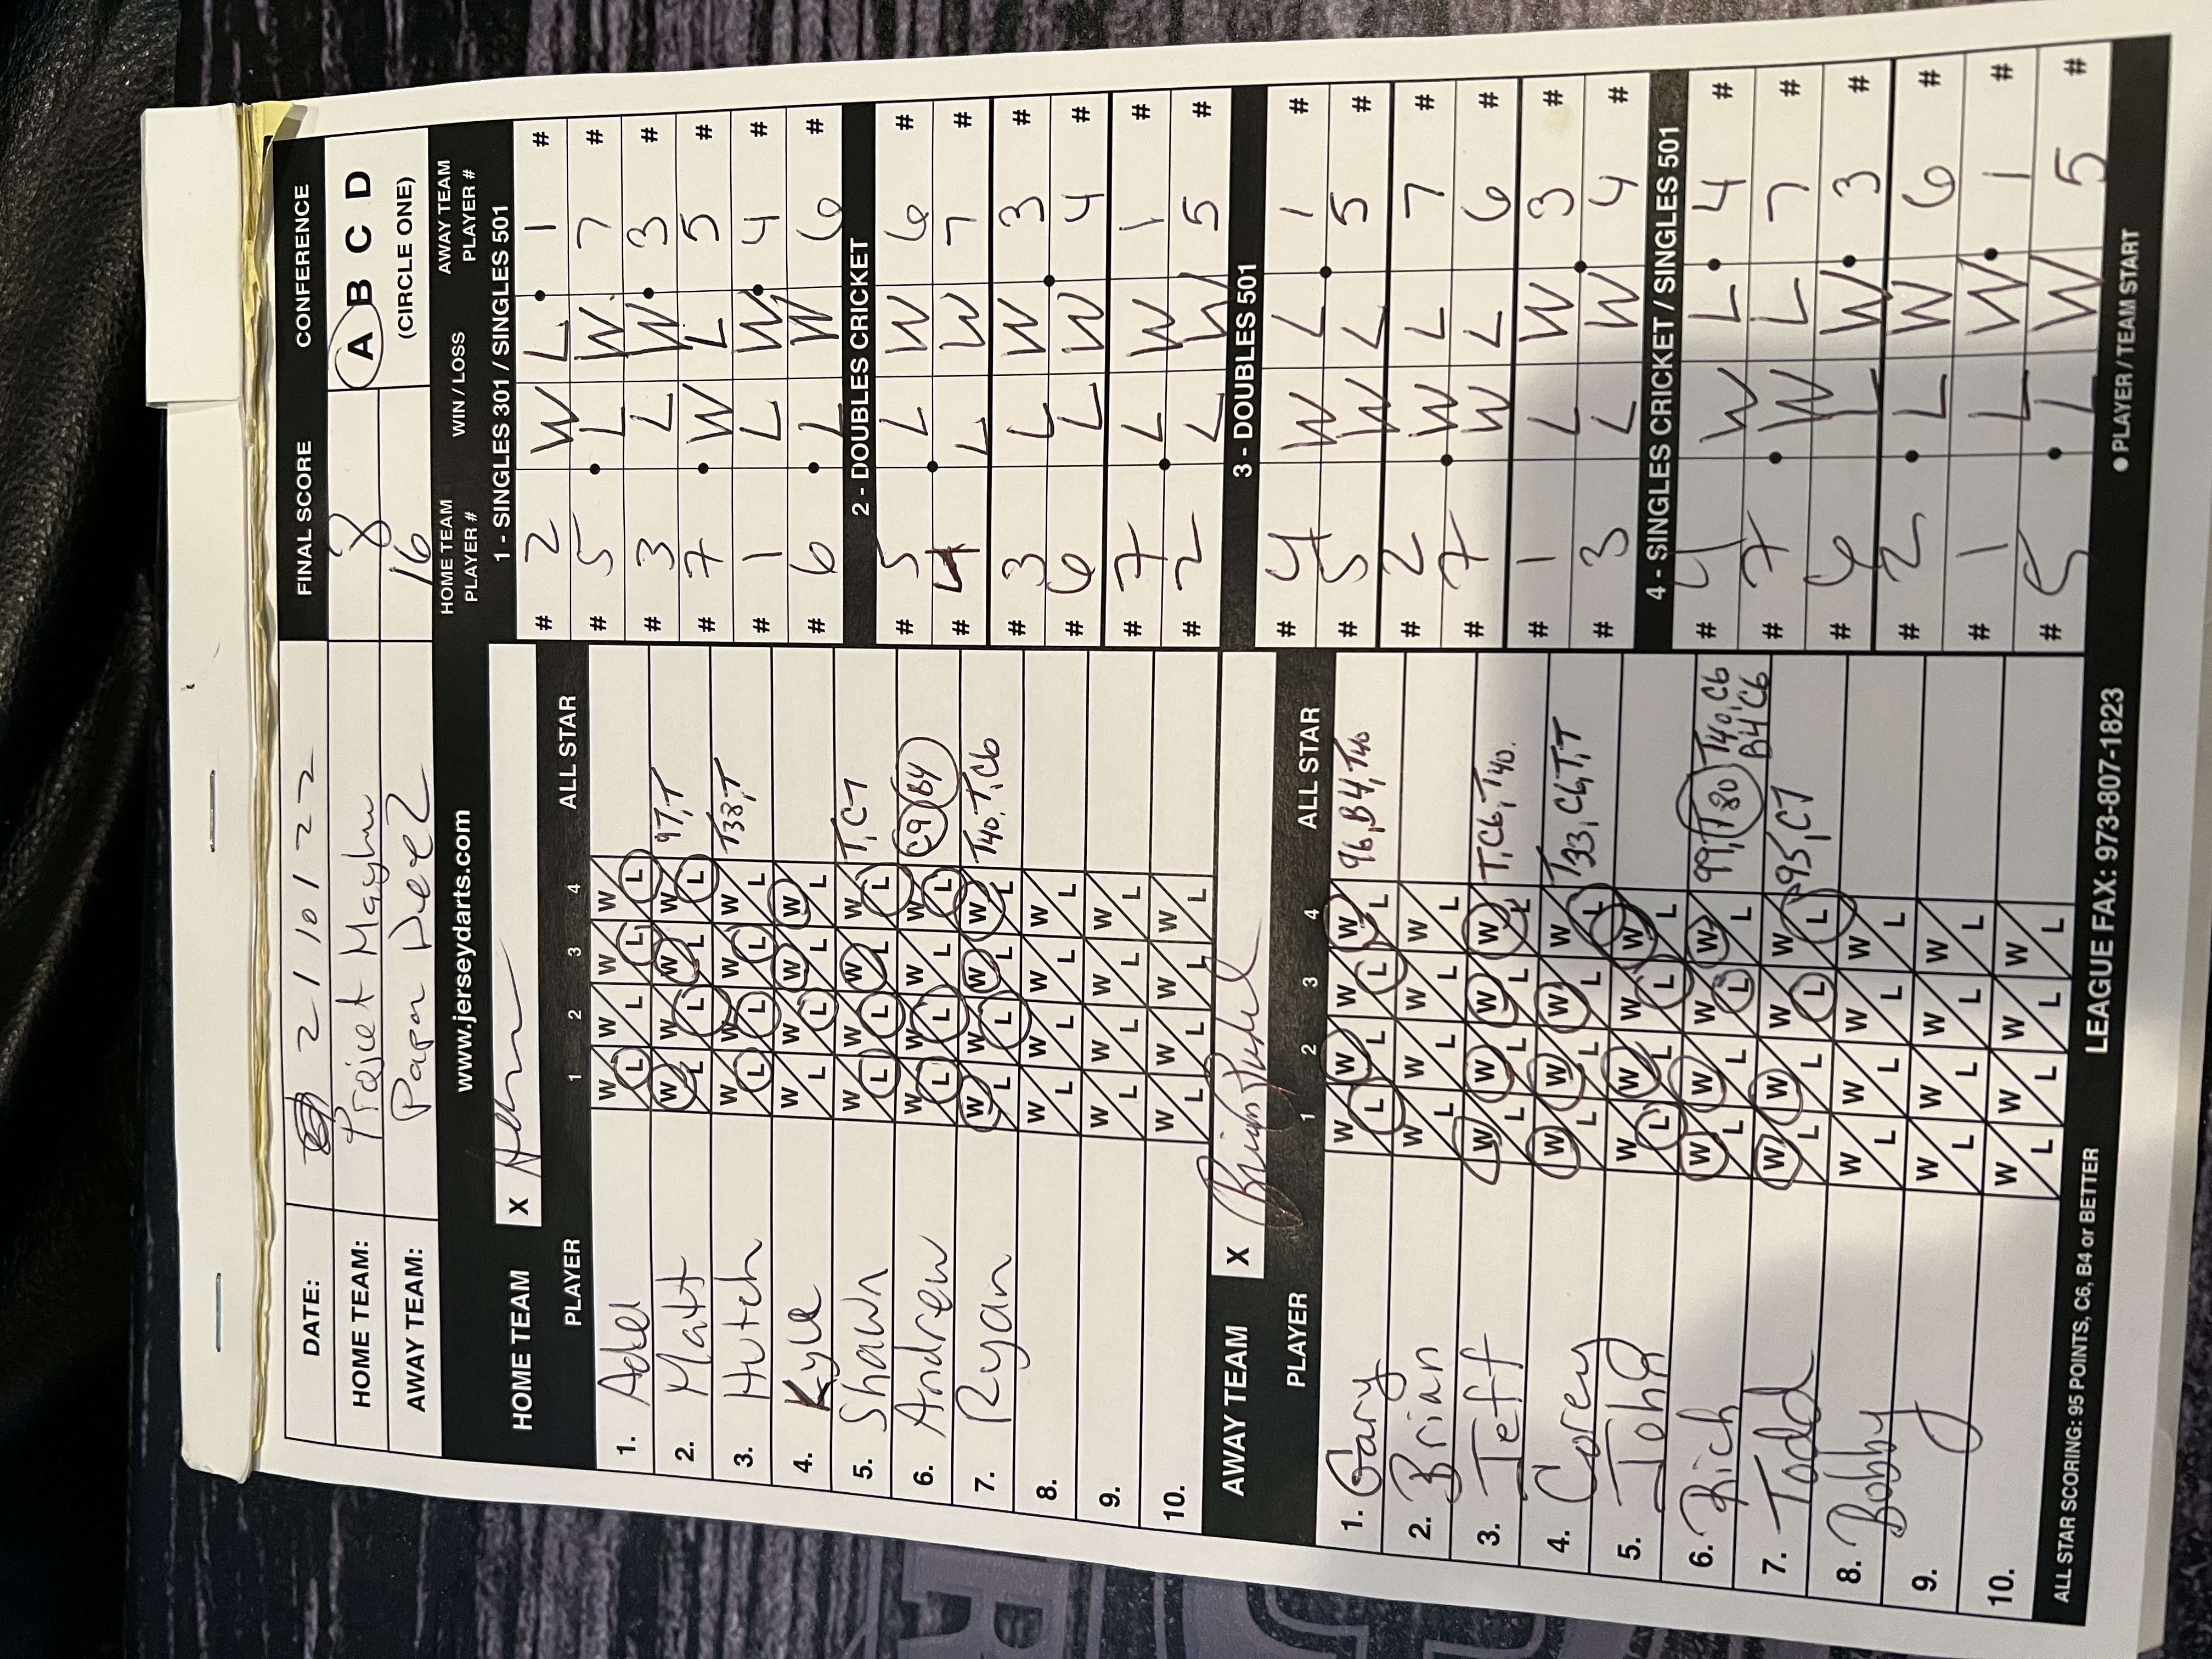 DATE: 2 / 10 / 22 FINAL SCORE CONFERENCE
HOME TEAM: Project Mayhem 8 A B C D
AWAY TEAM: Paper Deez 16 (CIRCLE ONE)
www.jerseydarts.com
HOME TEAM X
PLAYER 1 2 3 4 ALL STAR
1. Adel W L W L W L W L
2. Matt W L W L W L W L 97, T
3. Hutch W L W L W L W L T38, T
4. Kyle W L W L W L W L
5. Shawn W L W L W L W L T, C7
6. Andrew W L W L W L W L C9 B4
7. Ryan W L W L W L W L T40, T, C6
8. W L W L W L W L
9. W L W L W L W L
10. W L W L W L W L
AWAY TEAM X
PLAYER 1 2 3 4 ALL STAR
1. Gary W L W L W L W L 96, B4, T40
2. Brian W L W L W L W L
3. Jeff W L W L W L W L T, C6, T40.
4. Corey W L W L W L W L T33, C6, T, T
5. John W L W L W L W L
6. Rich W L W L W L W L 99, T80 T40, C6
B4 C6
7. Todd W L W L W L W L 95, C7
8. Bobby W L W L W L W L
9. W L W L W L W L
10. W L W L W L W L
ALL STAR SCORING: 95 POINTS, C6, B4 or BETTER
LEAGUE FAX: 973-807-1823
HOME TEAM PLAYER # WIN / LOSS AWAY TEAM PLAYER #
1 - SINGLES 301 / SINGLES 501
# 2 W L 1 #
# 5 L W 7 #
# 3 L W 3 #
# 7 W L 5 #
# 1 L W 4 #
# 6 L W 6 #
2 - DOUBLES CRICKET
# 5 L W 6 #
# 4 L W 7 #
# 3 L W 3 #
# 6 L W 4 #
# 7 L W 1 #
# 2 L W 5 #
3 - DOUBLES 501
# 4 W L 1 #
# 5 W L 5 #
# 2 W L 7 #
# 7 W L 6 #
# 1 L W 3 #
# 3 L W 4 #
4 - SINGLES CRICKET / SINGLES 501
# 4 W L 4 #
# 7 W L 7 #
# 6 L W 3 #
# 2 L W 6 #
# 1 L W 1 #
# 5 L W 5 #
● PLAYER / TEAM START